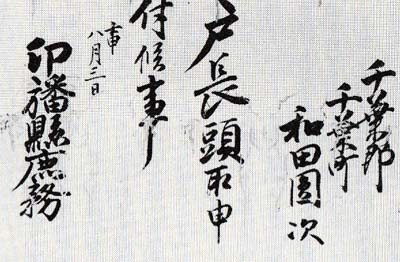 千葉郡
千葉町
和田園次
戸長頭取申
付候事
壬申
八月三日
印旛縣庶務